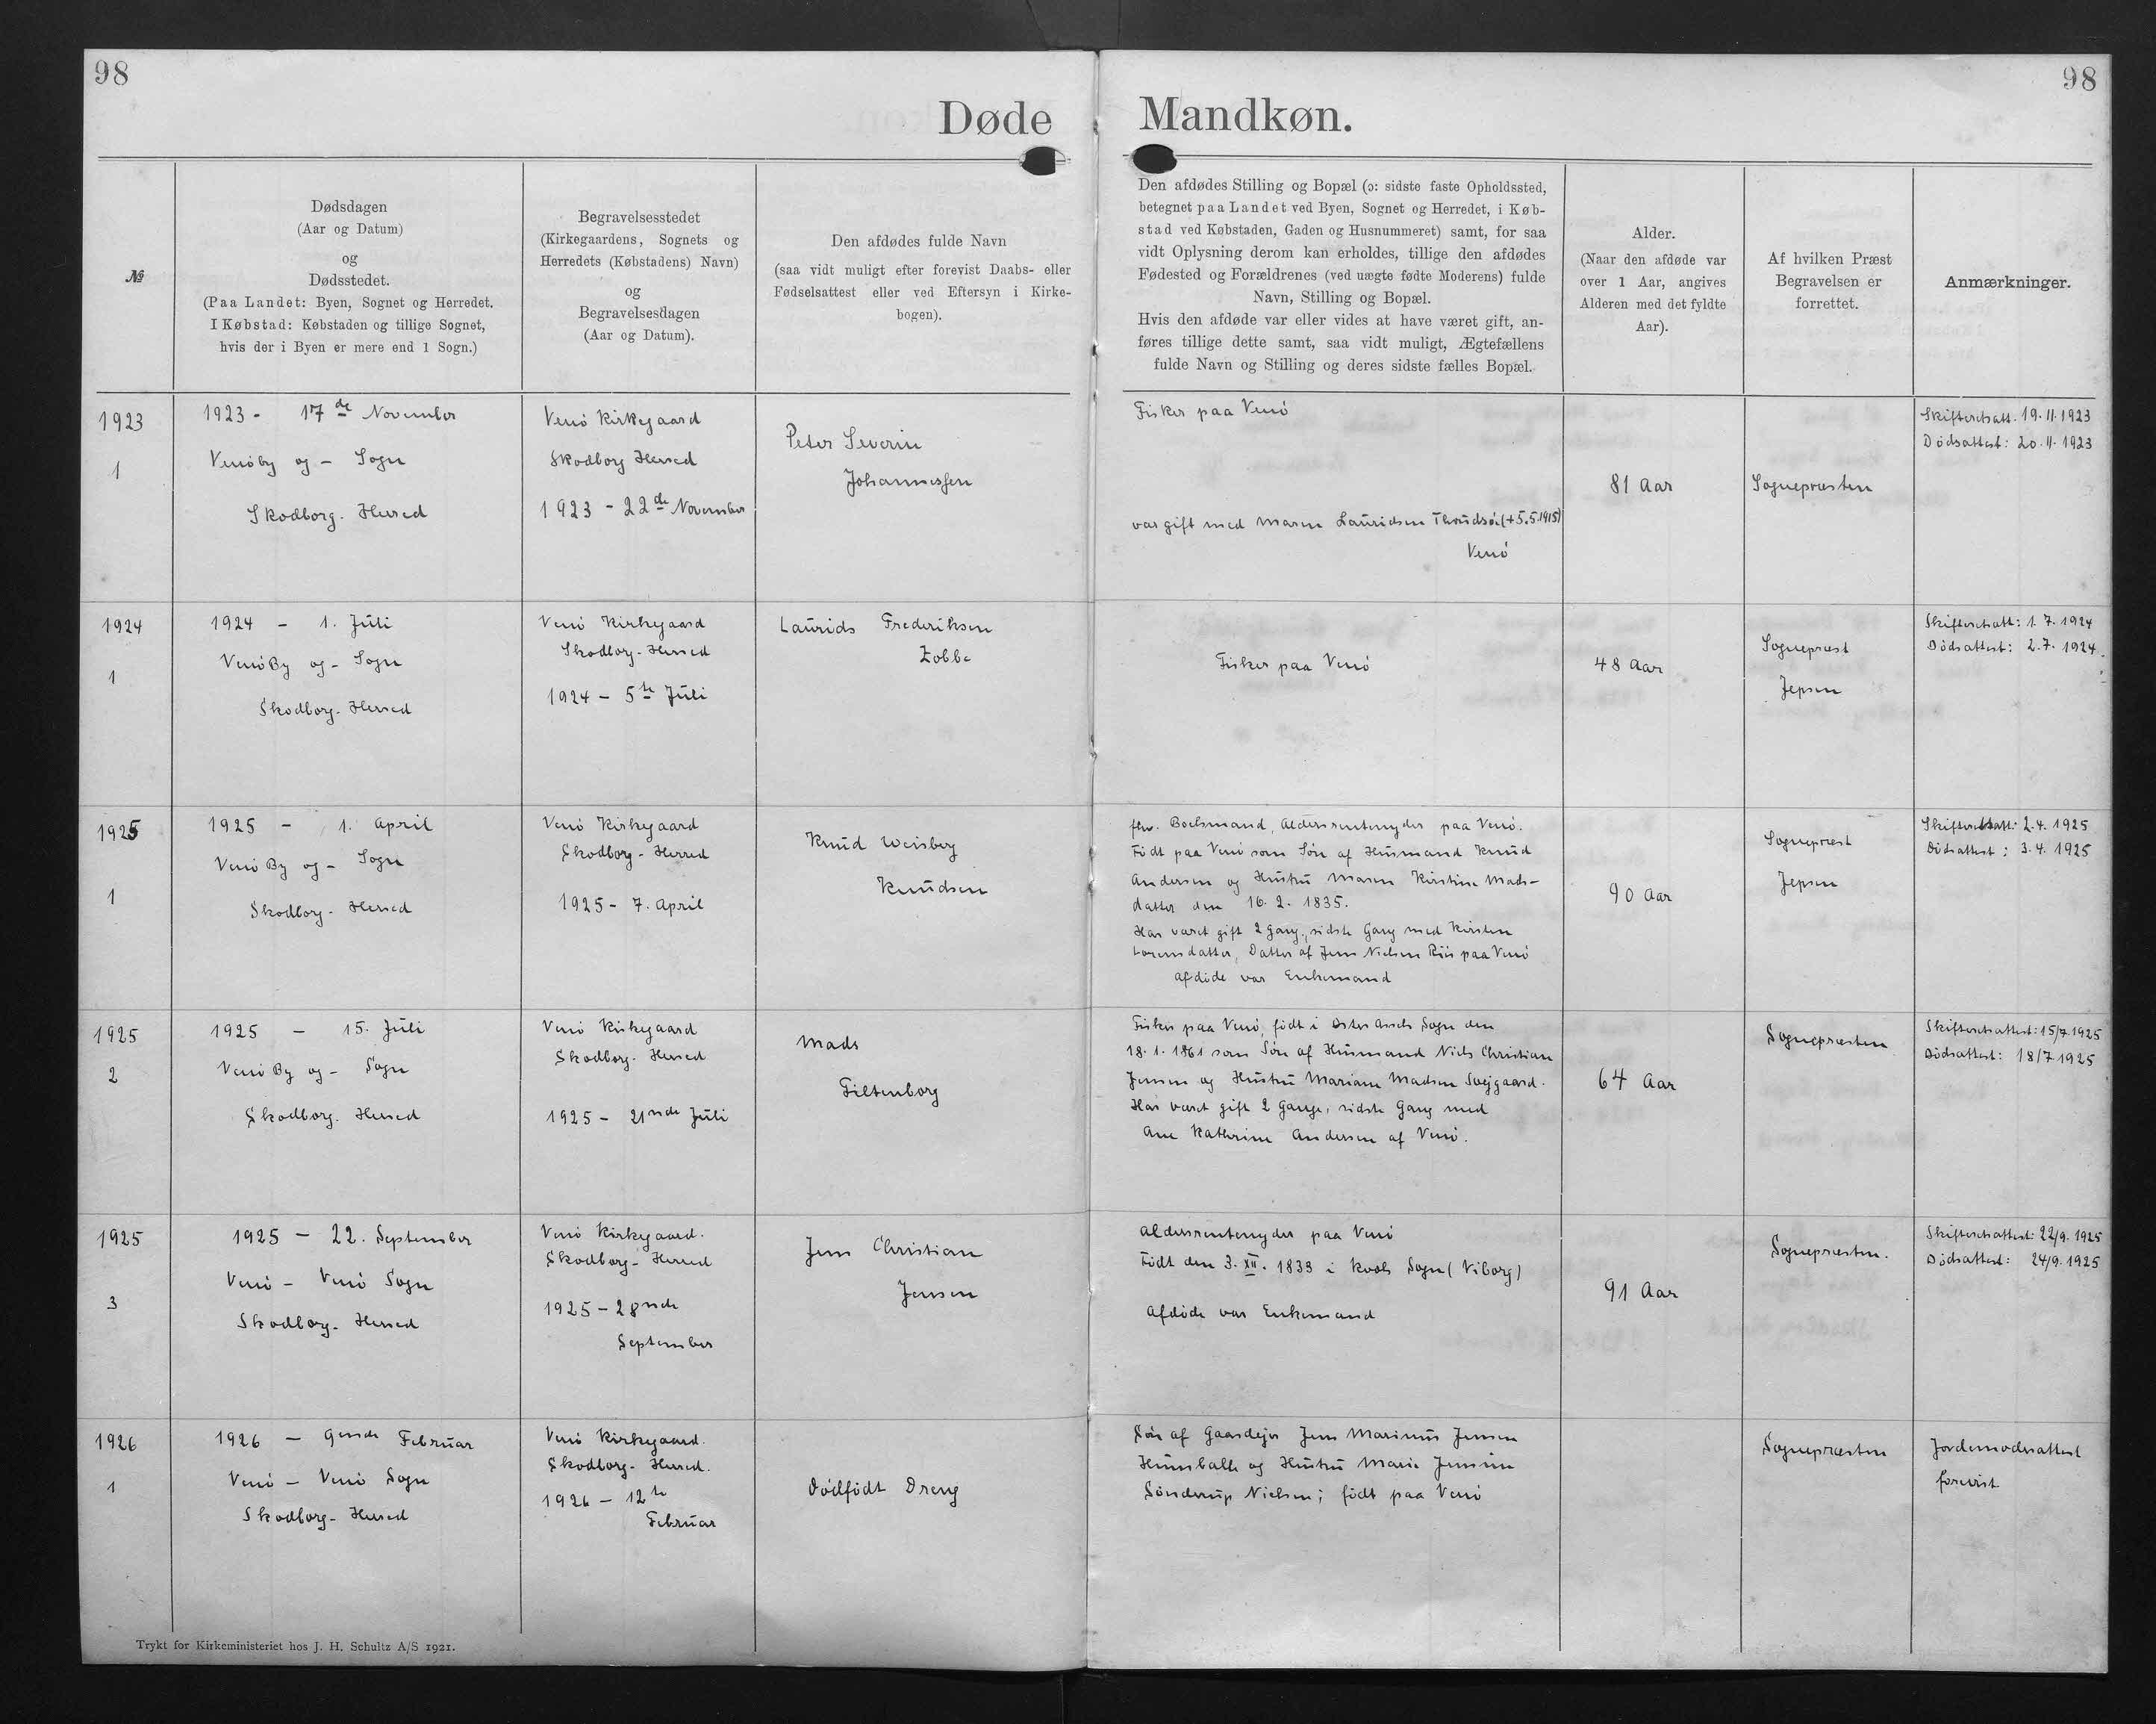 98
98
Døde
Mandkøn.
№
Dødsdagen
(Aar og Datum)
og
Dødsstedet.
(Paa Landet: Byen, Sognet og Herredet.
I Købstad: Købstaden og tillige Sognet,
hvis der i Byen er mere end 1 Sogn.)
Begravelsesstedet
(Kirkegaardens, Sognets og
Herredets (Købstadens) Navn)
og
Begravelsesdagen
(Aar og Datum).
Den afdødes fulde Navn
(saa vidt muligt efter forevist Daabs- eller
Fødselsattest eller ved Eftersyn i Kirke-
bogen).
Den afdødes Stilling og Bopæl (ɔ: sidste faste Opholdssted,
betegnet paa Landet ved Byen, Sognet og Herredet, i Køb-
stad ved Købstaden, Gaden og Husnummeret) samt, for saa
vidt Oplysning derom kan erholdes, tillige den afdødes
Fødested og Forældrenes (ved uægte fødte Moderens) fulde
Navn, Stilling og Bopæl.
Hvis den afdøde var eller vides at have været gift, an-
føres tillige dette samt, saa vidt muligt, Ægtefællens
fulde Navn og Stilling og deres sidste fælles Bopæl.
Alder.
(Naar den afdøde var
over 1 Aar, angives
Alderen med det fyldte
Aar).
Af hvilken Præst
Begravelsen er
forrettet.
Anmærkninger.
1923
1
1923 - 17de November
Venøby og - Sogn
Skodborg - Herred
Venø Kirkegaard
Skodborg Herred
1923 - 22de November
Peter Severin
Johannesen
Fisker paa Venø
var gift med Maren Lauridsen (+5.5.1915)
Venø
81 Aar
Sognepræsten
Skifteretsatt. 19.11.1923
Dødsattest: 20.11.1923
1924
1
1924 - 1. Juli
Venø By og - Sogn
Skodborg - Herred
Venø Kirkegaard
Skodborg - Herred
1924 - 5te Juli
Laurids Frederiksen
Lobbe
Fisker paa Venø
48 Aar
Sognepræst
Jepsen
Skifteretsatt: 1.7.1924
Dødsattest: 2.7.1924
1925
1
1925 - 1. April
Venø By og - Sogn
Skodborg - Herred
Venø Kirkegaard
Skodborg - Herred
1925 - 7. April
Knud Weisberg
Knudsen
fhv. Boelsmand, Aldersrentenyder paa Venø.
Født paa Venø som Søn af Husmand Knud
Andersen og Hustru Maren Kirstine Mads-
datter den 16.2.1835.
Har været gift 2 Gang., sidste Gang med Kirsten
Datter af Jens Nielsen Riis paa Venø
afdøde var Enkemand
90 Aar
Sognepræst
Jepsen
Skifteretsatt: 2.4.1925
Dødsattest: 3.4.1925
1925
2
1925 - 15. Juli
Venø By og - Sogn
Skodborg - Herred
Venø Kirkegaard
Skodborg - Herred
1925 - 21nde Juli
Mads
Filtenborg
Fisker paa Venø, født i Øster Assels Sogn den
18.1.1861 som Søn af Husmand Niels Christian
Jensen og Hustru Mariane Madsen
Har været gift 2 Gange, sidste Gang med
Ane Kathrine Andersen af Venø.
64 Aar
Sognepræsten
Skifteretsattest: 15/7 1925
Dødsattest: 18/7 1925
1925
3
1925 - 22. September
Venø - Venø Sogn
Skodborg - Herred
Venø Kirkegaard.
Skodborg - Herred
1925 - 28nde
September
Jens Christian
Jensen
Aldersrentenyder paa Venø
Født den 3. XII. 1833 i Kvols Sogn (Viborg)
Afdøde var Enkemand
91 Aar
Sognepræsten.
Skifteretsattest: 22/9. 1925
Dødsattest: 24/9. 1925
1926
1
1926 - 9ende Februar
Venø - Venø Sogn
Skodborg - Herred
Venø Kirkegaard.
Skodborg - Herred.
1926 - 12te
Februar
Dødfødt Dreng
Søn af Gaardejer Jens Marinus Jensen
og Hustru Marie Jensine
Sønderup Nielsen; født paa Venø
Sognepræsten
Jordemoderattest
forevist
Trykt for Kirkeministeriet hos J. H. Schultz A/S 1921.